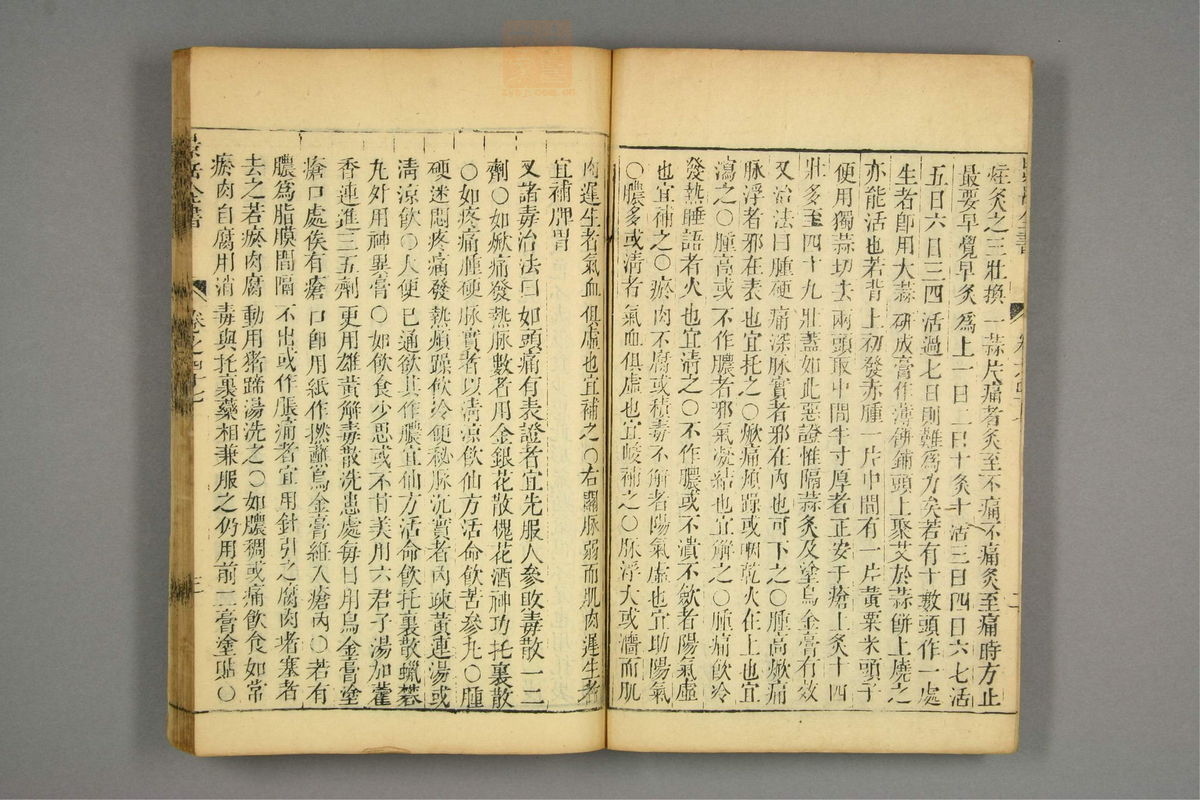 痓灸之三壯換一蒜片痛者灸至不痛不痛灸至痛時方止
最要早覺早灸爲上一日二日十灸十活三日四日六七活
五日六日三四活過七日則難爲力矣若有十數頭作一處
生者卽用大蒜研成膏作薄餅鋪頭上聚艾於蒜餅上燒之
亦能活也若背上初發赤腫一片中間有一片黃粟米頭子
便用獨蒜切去兩頭取中間半寸厚者正安于瘡上灸十四
壯多至四十九壯蓋如此惡證惟隔蒜灸及塗烏金膏有效
又治法曰腫硬痛深脉實者邪在內也可下之○腫高焮痛
脉浮者邪在表也宜托之○焮痛煩躁或咽乾火在上也宜
瀉之○腫高或不作膿者邪氣凝結也宜解之○腫痛飲冷
發熱睡語者火也宜清之○不作膿或不潰不斂者陽氣虛
也宜補之○瘀肉不腐或積毒不解者陽氣虛也宜助陽氣
○膿多或清者氣血俱虛也宜峻補之○脉浮大或濇而肌
肉遲生者氣血俱虛也宜補之○右關脉弱而肌肉遲生者
宜補脾胃
又諸毒治法曰如頭痛有表證者宜先服人參敗毒散一二
劑○如焮痛發熱脉數者用金銀花散槐花酒神功托裏散
○如疼痛腫硬脉實者以清凉飲仙方活命飲苦參丸○腫
硬迷悶疼痛發熱煩躁飲冷便秘脉沉實者內疎黃連湯或
清凉飲○大便已通欲其作膿宜仙方活命飲托裏散蠟礬
丸外用神異膏○如飲食少思或不甘美用六君子湯加藿
香連進三五劑更用雄黃解毒散洗患處每日用烏金膏塗
瘡口處俟有瘡口卽用紙作撚蘸烏金膏絍入瘡內○若有
膿爲脂膜間隔不出或作脹痛者宜用針引之腐肉者塞者
去之若瘀肉腐動用猪蹄湯洗之○如膿稠或痛飲食如常
瘀肉自腐用消毒與托裏藥相兼服之仍用前二膏塗貼○
景岳全書
卷之四十七
三